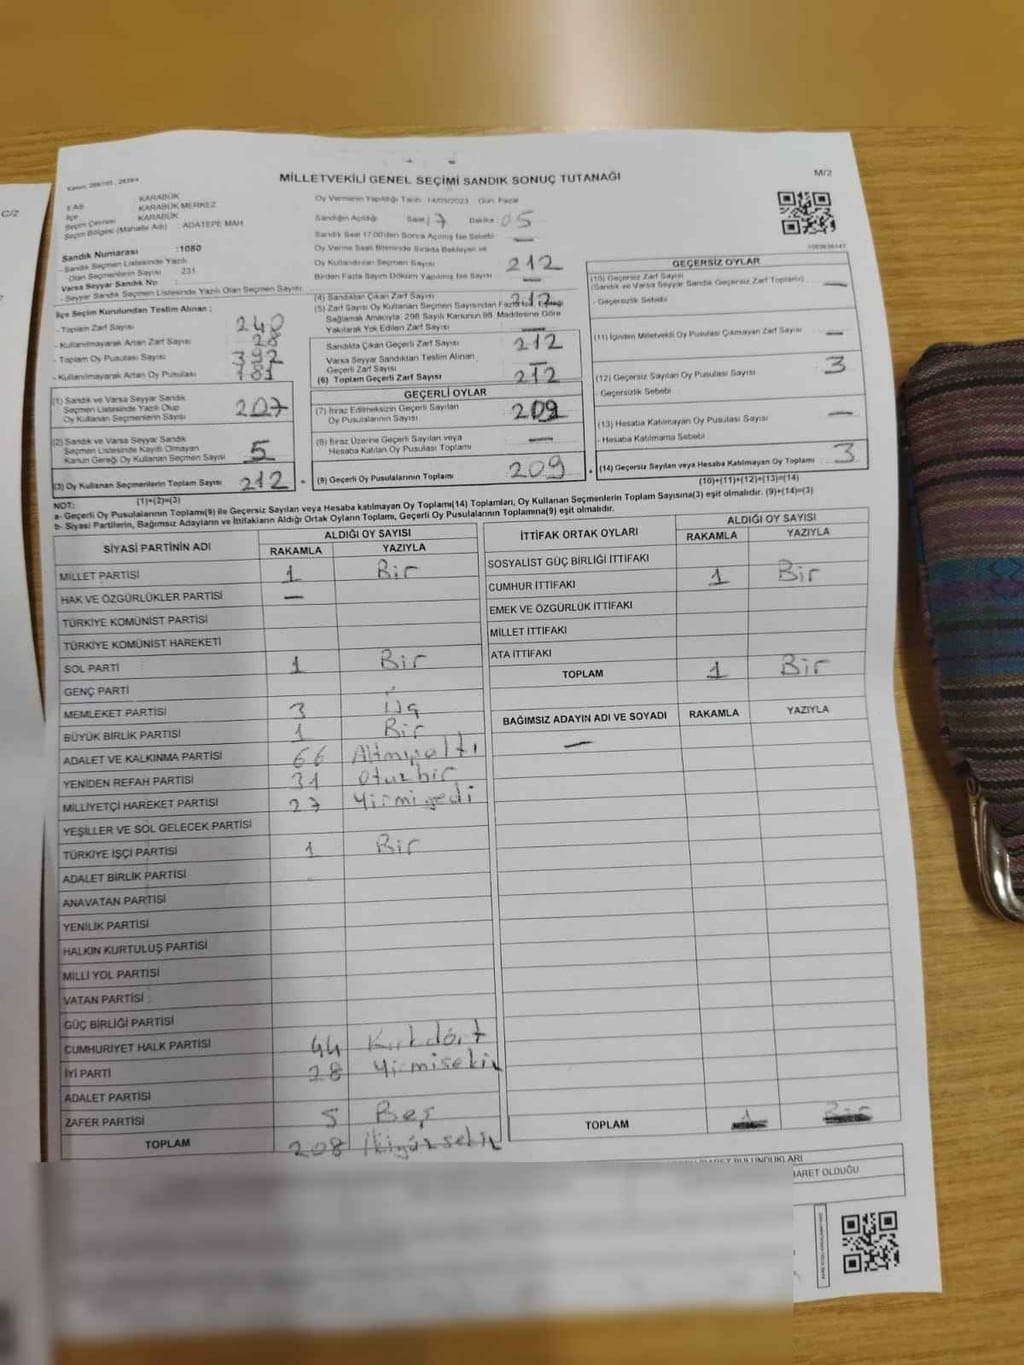 C/2
MİLLETVEKİLİ GENEL SEÇİMİ SANDIK SONUÇ TUTANAĞI
M/2
İl Adı KARABÜK
İlçe KARABÜK MERKEZ
Seçim Çevresi KARABÜK
Seçim Bölgesi (Mahalle Adı) : ADATEPE MAH
Sandık Numarası :1080
- Sandık Seçmen Listesinde Yazılı
Olan Seçmenlerin Sayısı 231
Varsa Seyyar Sandık No
- Seyyar Sandık Seçmen Listesinde Yazılı Olan Seçmen Sayısı
İlçe Seçim Kurulundan Teslim Alınan :
- Toplam Zarf Sayısı 240
- Kullanılmayarak Artan Zarf Sayısı 28
- Toplam Oy Pusulası Sayısı 392
- Kullanılmayarak Artan Oy Pusulası 181
(1) Sandık ve Varsa Seyyar Sandık
Seçmen Listesinde Yazılı Olup
Oy Kullanan Seçmenlerin Sayısı 207
(2) Sandık ve Varsa Seyyar Sandık
Seçmen Listesinde Kayıtlı Olmayan
Kanun Gereği Oy Kullanan Seçmen Sayısı 5
(3) Oy Kullanan Seçmenlerin Toplam Sayısı 212
(1)+(2)=(3)
Oy Vermenin Yapıldığı Tarih 14/05/2023 Gün Pazar
Sandığın Açıldığı Saat 17 Dakika : 05
Sandık Saat 17:00'den Sonra Açılmış İse Sebebi —
Oy Verme Saati Bitiminde Sırada Bekleyen ve
Oy Kullandırılan Seçmen Sayısı 212
Birden Fazla Sayım Döküm Yapılmış İse Sayısı —
(4) Sandıktan Çıkan Zarf Sayısı 212
(5) Zarf Sayısı Oy Kullanan Seçmen Sayısından Fazla İse, Eşitliği
Sağlamak Amacıyla, 298 Sayılı Kanunun 98. Maddesine Göre
Yakılarak Yok Edilen Zarf Sayısı —
Sandıkta Çıkan Geçerli Zarf Sayısı 212
Varsa Seyyar Sandıktan Teslim Alınan
Geçerli Zarf Sayısı —
(6) Toplam Geçerli Zarf Sayısı 212
GEÇERLİ OYLAR
(7) İtiraz Edilmeksizin Geçerli Sayılan
Oy Pusulalarının Sayısı 209
(8) İtiraz Üzerine Geçerli Sayılan veya
Hesaba Katılan Oy Pusulası Toplamı —
(9) Geçerli Oy Pusulalarının Toplamı 209
GEÇERSİZ OYLAR
(10) Geçersiz Zarf Sayısı
(Sandık ve Varsa Seyyar Sandık Geçersiz Zarf Toplamı) —
- Geçersizlik Sebebi
(11) İçinden Milletvekili Oy Pusulası Çıkmayan Zarf Sayısı —
(12) Geçersiz Sayılan Oy Pusulası Sayısı 3
- Geçersizlik Sebebi
(13) Hesaba Katılmayan Oy Pusulası Sayısı —
- Hesaba Katılmama Sebebi
(14) Geçersiz Sayılan veya Hesaba Katılmayan Oy Toplamı 3
(10)+(11)+(12)+(13)=(14)
NOT:
a- Geçerli Oy Pusulalarının Toplamı(9) ile Geçersiz Sayılan veya Hesaba katılmayan Oy Toplamı(14) Toplamları, Oy Kullanan Seçmenlerin Toplam Sayısına(3) eşit olmalıdır. (9)+(14)=(3)
b- Siyasi Partilerin, Bağımsız Adayların ve İttifakların Aldığı Ortak Oyların Toplamı, Geçerli Oy Pusulalarının Toplamına(9) eşit olmalıdır.
SİYASİ PARTİNİN ADI ALDIĞI OY SAYISI
RAKAMLA YAZIYLA
MİLLET PARTİSİ 1 Bir
HAK VE ÖZGÜRLÜKLER PARTİSİ —
TÜRKİYE KOMÜNİST PARTİSİ
TÜRKİYE KOMÜNİST HAREKETİ
SOL PARTİ 1 Bir
GENÇ PARTİ
MEMLEKET PARTİSİ 3 Üç
BÜYÜK BİRLİK PARTİSİ 1 Bir
ADALET VE KALKINMA PARTİSİ 66 Altmışaltı
YENİDEN REFAH PARTİSİ 31 otuzbir
MİLLİYETÇİ HAREKET PARTİSİ 27 Yirmiyedi
YEŞİLLER VE SOL GELECEK PARTİSİ
TÜRKİYE İŞÇİ PARTİSİ 1 Bir
ADALET BİRLİK PARTİSİ
ANAVATAN PARTİSİ
YENİLİK PARTİSİ
HALKIN KURTULUŞ PARTİSİ
MİLLİ YOL PARTİSİ
VATAN PARTİSİ
GÜÇ BİRLİĞİ PARTİSİ
CUMHURİYET HALK PARTİSİ 44 Kırkdört
İYİ PARTİ 28 Yirmisekiz
ADALET PARTİSİ
ZAFER PARTİSİ 5 Beş
TOPLAM 208 İkiyüzsekiz
İTTİFAK ORTAK OYLARI ALDIĞI OY SAYISI
RAKAMLA YAZIYLA
SOSYALİST GÜÇ BİRLİĞİ İTTİFAKI
CUMHUR İTTİFAKI 1 Bir
EMEK VE ÖZGÜRLÜK İTTİFAKI
MİLLET İTTİFAKI
ATA İTTİFAKI
TOPLAM 1 Bir
BAĞIMSIZ ADAYIN ADI VE SOYADI RAKAMLA YAZIYLA
—
TOPLAM
BULUNDUKLARI
İBARET OLDUĞU